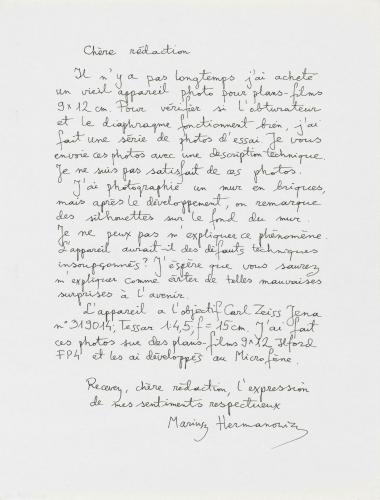 Chère rédaction
Il n'y a pas longtemps j'ai acheté
un vieil appareil photo pour plans-films
9×12 cm. Pour vérifier si l'obturateur
et le diaphragme fonctionnent bien, j'ai
fait une série de photos d'essai. Je vous
envoie ces photos avec une description technique.
Je ne suis pas satisfait de ces photos.
J'ai photographié un mur en briques,
mais après le développement, on remarque
des silhouettes sur le fond du mur.
Je ne peux pas m'expliquer ce phénomène.
L'appareil aurait-il des défauts techniques
insoupçonnés? J'éspère que vous saurez
m'expliquer comme éviter de telles mauvaises
surprises à l'avenir.
L'appareil a l'objectif Carl Zeiss Jena
n° 319014, Tessar 1:4,5, f = 15cm. J'ai fait
ces photos sur des plans-films 9×12 Ilford
FP4 et les ai développés au Microfène.
Recevez, chère rédaction, l'expression
de mes sentiments respectueux
Hermanowicz